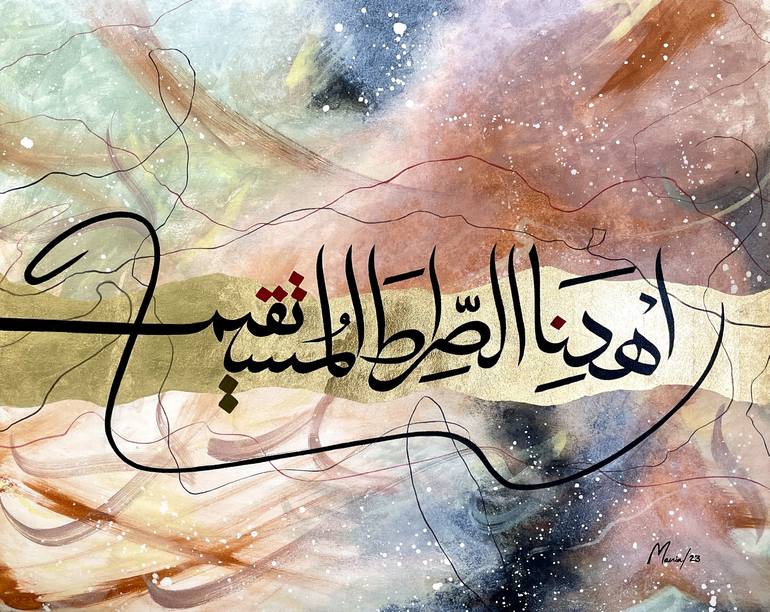 اهْدِنَا الصِّرَاطَ الْمُسْتَقِيمَ
Maria/23